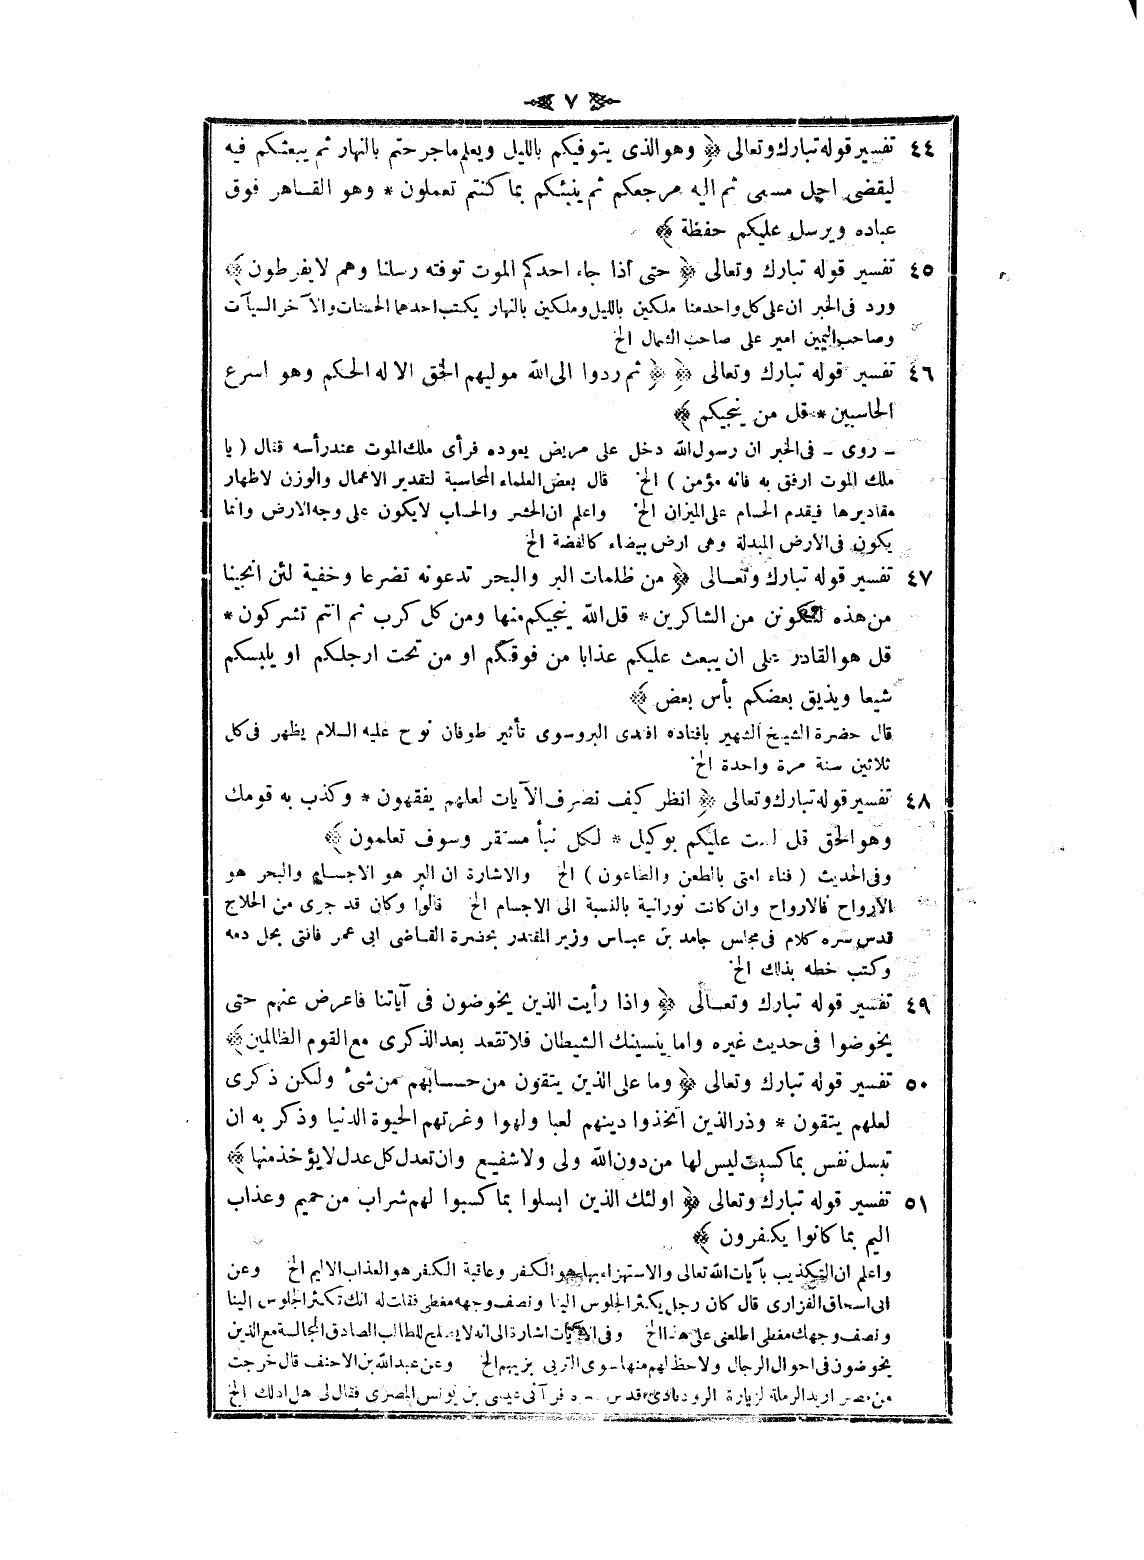 ٧
٤٤ تفسير قوله تبارك وتعالى ﴿ وهو الذى يتوفيكم بالليل ويعلم ماجرحتم بالنهار ثم يبعثكم فيه
ليقضى اجل مسمى ثم اليه مرجعكم ثم ينبئكم بما كنتم تعملون * وهو القاهر فوق
عباده ويرسل عليكم حفظة ﴾
٤٥ تفسير قوله تبارك وتعالى ﴿ حتى اذا جاء احدكم الموت توفته رسلنا وهم لايفرطون ﴾
ورد فى الخبر ان على كل واحد منا ملكين بالليل وملكين بالنهار يكتب احدهما الحسنات والآخر السيآت
وصاحب اليمين امير على صاحب الشمال الخ
٤٦ تفسير قوله تبارك وتعالى ﴿ ثم ردوا الى الله موليهم الحق الا له الحكم وهو اسرع
الحاسبين * قل من ينجيكم ﴾
ـ روى ـ فى الخبر ان رسول الله دخل على مريض يعوده فرأى ملك الموت عند رأسه فقال ( يا
ملك الموت ارفق به فانه مؤمن ) الخ قال بعض العلماء المحاسبة لتقدير الاعمال والوزن لاظهار
مقاديرها فيقدم الحسام على الميزان الخ واعلم ان الحشر والحساب لايكون على وجه الارض وانما
يكون فى الارض المبدلة وهى ارض بيضاء كالفضة الخ
٤٧ تفسير قوله تبارك وتعالى ﴿ من ظلمات البر والبحر تدعونه تضرعا وخفية لئن انجينا
من هذه لنكونن من الشاكرين * قل الله ينجيكم منها ومن كل كرب ثم انتم تشركون *
قل هو القادر على ان يبعث عليكم عذابا من فوقكم او من تحت ارجلكم او يلبسكم
شيعا ويذيق بعضكم بأس بعض ﴾
قال حضرة الشيخ الشهير بافتاده افندى البروسوى تأثير طوفان نوح عليه السلام يظهر فى كل
ثلاثين سنة مرة واحدة الخ
٤٨ تفسير قوله تبارك وتعالى ﴿ انظر كيف نصرف الآيات لعلهم يفقهون * وكذب به قومك
وهو الحق قل لست عليكم بوكيل * لكل نبأ مستقر وسوف تعلمون ﴾
وفى الحديث ( فناء امتى بالطعن والطاعون ) الخ والاشارة ان البر هو الاجسام والبحر هو
الارواح فالارواح وان كانت نورانية بالنسبة الى الاجسام الخ قالوا وكان قد جرى من الحلاج
قدس سره كلام فى مجلس حامد بن عباس وزير المقتدر بحضرة القاضى ابى عمر فافتى بحل دمه
وكتب خطه بذلك الخ
٤٩ تفسير قوله تبارك وتعالى ﴿ واذا رأيت الذين يخوضون فى آياتنا فاعرض عنهم حتى
يخوضوا فى حديث غيره واما ينسينك الشيطان فلا تقعد بعد الذكرى مع القوم الظالمين ﴾
٥٠ تفسير قوله تبارك وتعالى ﴿ وما على الذين يتقون من حسابهم من شئ ولكن ذكرى
لعلهم يتقون * وذر الذين اتخذوا دينهم لعبا ولهوا وغرتهم الحيوة الدنيا وذكر به ان
تبسل نفس بما كسبت ليس لها من دون الله ولى ولا شفيع وان تعدل كل عدل لا يؤخذ منها ﴾
٥١ تفسير قوله تبارك وتعالى ﴿ اولئك الذين ابسلوا بما كسبوا لهم شراب من حميم وعذاب
اليم بما كانوا يكفرون ﴾
واعلم ان التكذيب بآيات الله تعالى والاستهزاء بها هو الكفر وعاقبة الكفر هو العذاب الاليم الخ وعن
ابى اسحاق الفزارى قال كان رجل يكثر الجلوس الينا ونصف وجهه مغطى فقلت له انك تكثر الجلوس الينا
ونصف وجهك مغطى اطلعنى على هذا الخ وفى الآيات اشارة الى انه لا يصلح للطالب الصادق المجالسة مع الذين
يخوضون فى احوال الرجال ولاحظ لهم منها سوى التزيى بزيهم الخ وعن عبد الله بن الاحنف قال خرجت
من مصر اريد الرملة لزيارة الرودبادى قدس سره فرآنى عيسى بن يونس المصرى فقال لى هل ادلك الخ